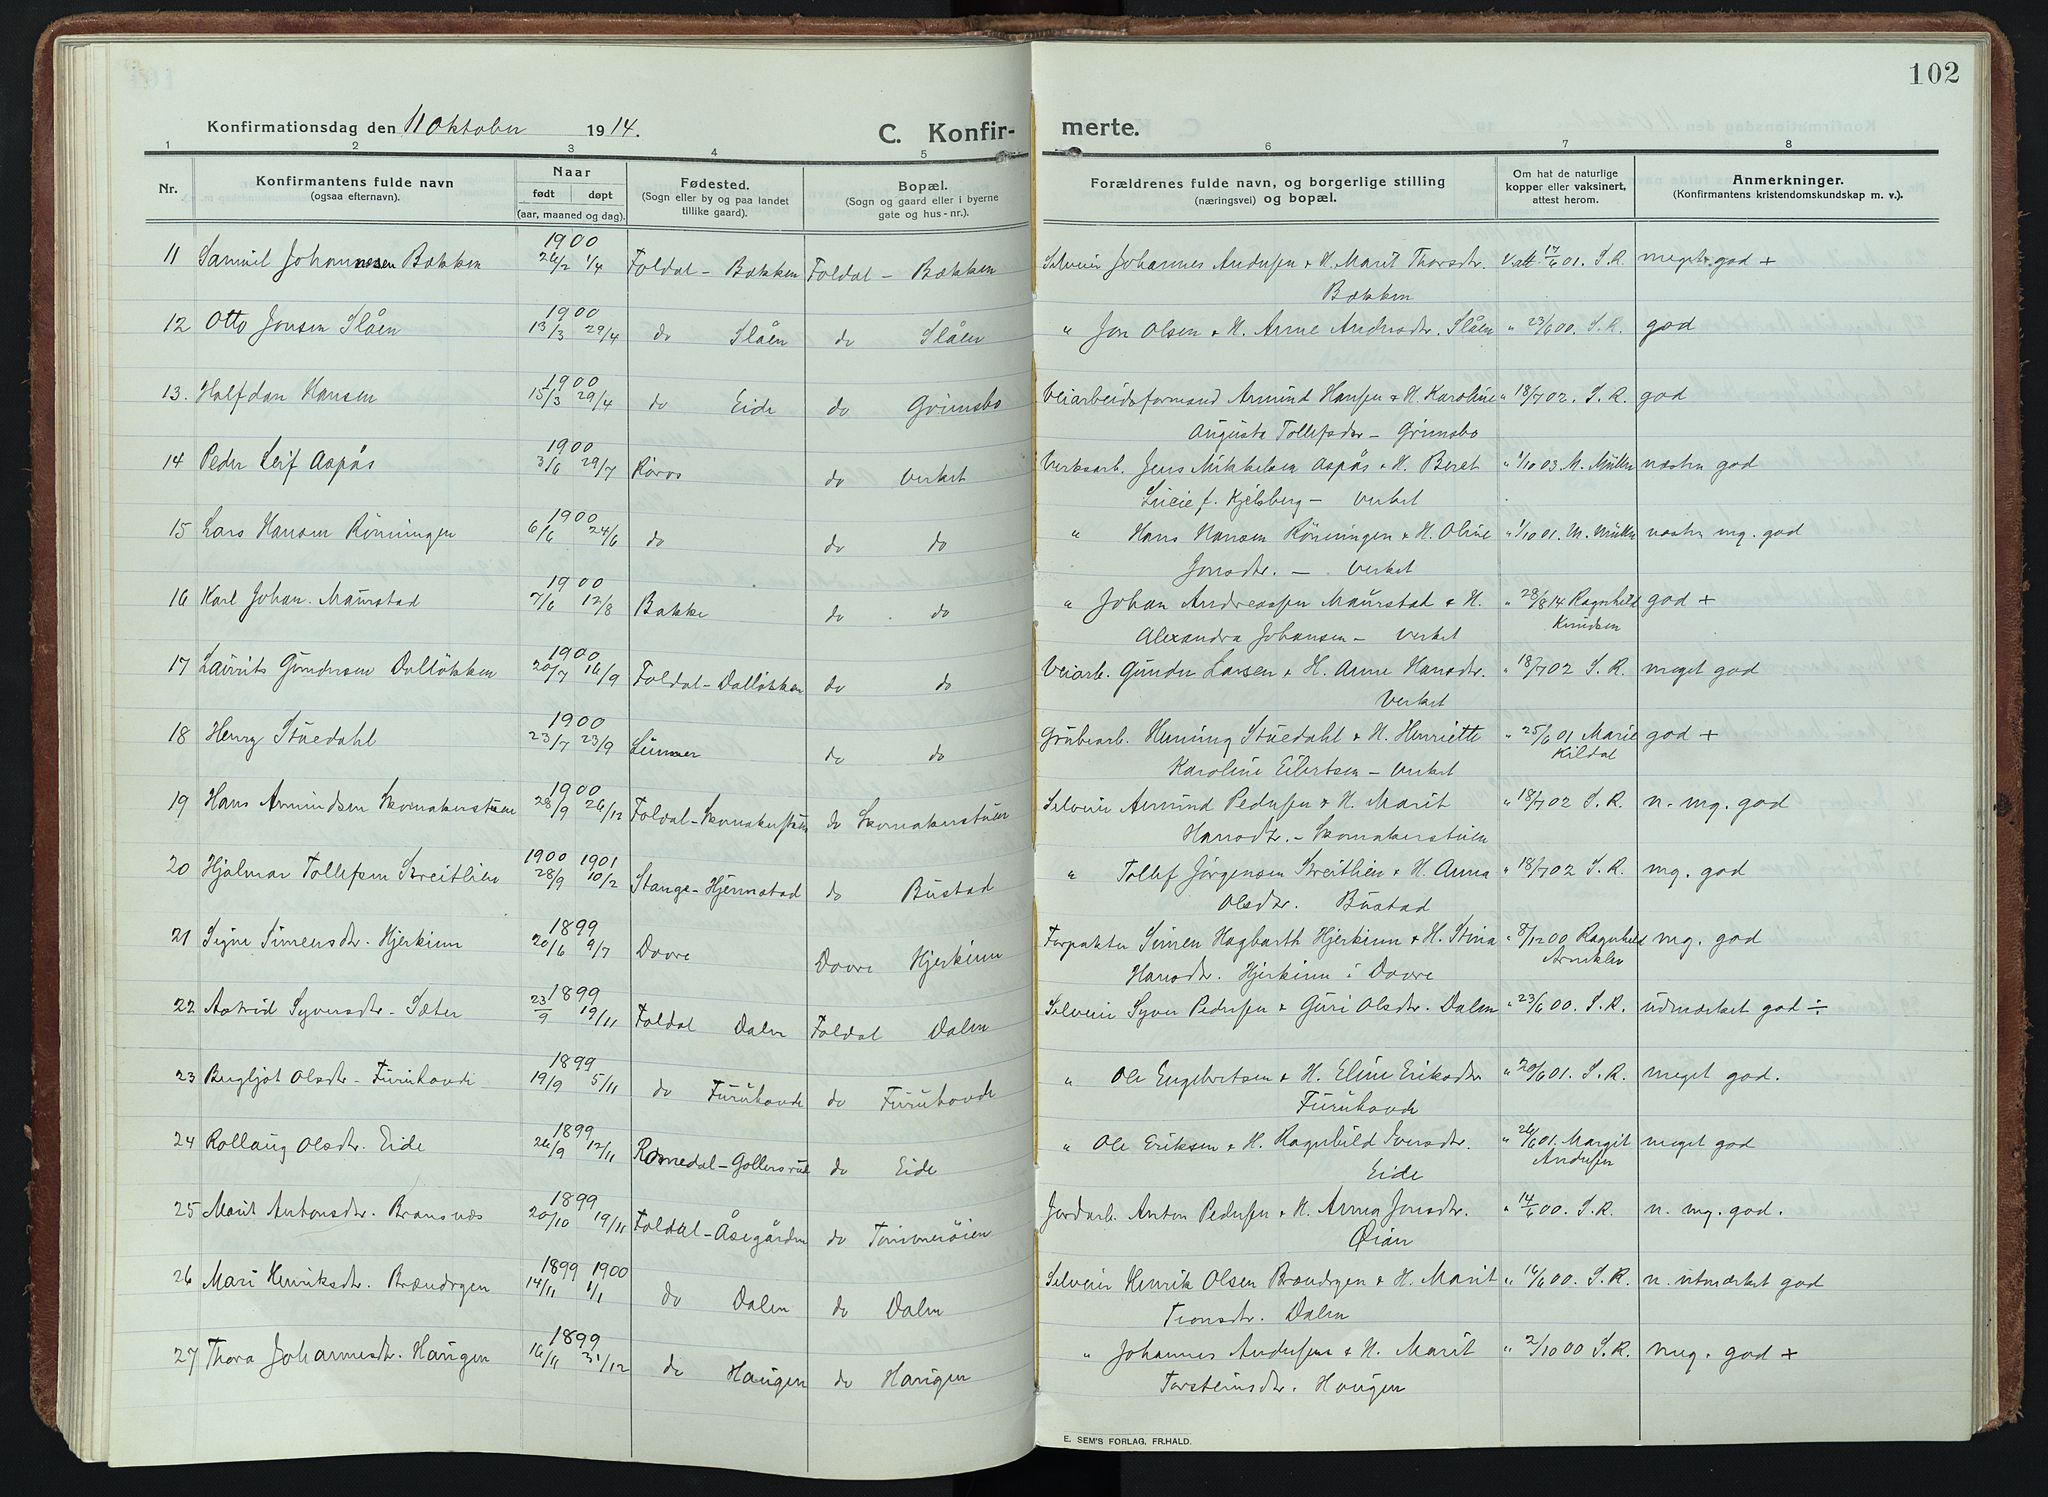 102
Konfirmationsdag den 11 Oktober 1914.
C. Konfir-
merte.
1 2 3 4 5 6 7 8
Nr.
Konfirmantens fulde navn
(ogsaa efternavn).
Naar
født døpt
(aar, maaned og dag).
Fødested.
(Sogn eller by og paa landet
tillike gaard).
Bopæl.
(Sogn og gaard eller i byerne
gate og hus-nr.).
Forældrenes fulde navn, og borgerlige stilling
(næringsvei) og bopæl.
Om hat de naturlige
kopper eller vaksinert,
attest herom.
Anmerkninger.
(Konfirmantens kristendomskundskap m. v.).
1900
11 Samuel Johannesen Bækken 26/2 1/4 Foldal - Bækken Foldal - Bækken Selveier Johannes Andersen & H. Marit Thorsdtr. Vatt. 17/6 01. S.R. meget god +
Bækken
1900
12 Otto Jonsen Slåen 13/3 29/4 do Slåen do Slåen " Jon Olsen & H. Anne Andersdtr. Slåen " 23/6 00. S.R. god
1900
13. Halfdan Hansen 15/3 29/4 do Eide do Grimsbo Veiarbeidsformand Amund Hansen & H. Karoline " 18/7 02. S.R. god
Augusta Tollefsdtr - Grimsbo
1900
14 Peder Leif Aspås 3/6 29/7 Röros do Verket Verksarb. Jens Mikkelsen Aspås & H. Beret " 1/10 03 M. Müller næsten god
Lucie f. Kjelsberg - Verket
1900
15 Lars Hansen Rönningen 6/6 24/6 do do do " Hans Hansen Rönningen & H. Oline " 1/10 01. M. Müller næsten mg. god
Jonsdtr. - Verket
1900
16 Karl Johan Maurstad 7/6 12/8 Bakke do do " Johan Andreassen Maurstad & H. " 28/8 14 Ragnhild god +
Knudsen
Alexandra Johansen - Verket
1900
17 Laurits Gundersen Dalløkken 20/7 16/9 Foldal - Dalløkken do do Veiarb. Gunder Larsen & H. Anne Hansdtr. " 18/7 02 S.R. meget god
Verket
1900
18 Henry Stuedahl 23/7 23/9 Lunner do do Grubearb. Henning Stuedahl & H. Henriette " 25/6 01 Marie god +
Kildal
Karoline Eilertsen - Verket
1900
19 Hans Amundsen Skomakerstuen 28/9 26/12 Foldal - Skomakerstuen do Skomakerstuen Selveier Amund Pedersen & H. Marit " 18/7 02 S.R. n. mg. god
Hansdtr. - Skomakerstuen
1900 1901
20 Hjalmar Tollefsen Streitlien 28/9 10/2 Stange - Hjermstad do Bustad " Tollef Jørgensen Streitlien & H. Anna " 18/7 02 S.R. mg. god
Olsdtr. Bustad
1899
21 Signe Simensdtr. Hjerkinn 20/6 9/7 Dovre Dovre Hjerkinn Forpakter Simen Hagbarth Hjerkinn & H. Stina " 8/12 00 Ragnhild mg. god
Hansdtr. Hjerkinn i Dovre
1899
22 Astrid Syversdtr. Sæter 23/9 19/11 Foldal Dalen Foldal Dalen Selveier Syver Pedersen & Guri Olsdtr. Dalen " 23/6 00. S.R. udmærket god ÷
1899
23 Bergljot Olsdtr - Furuhovde 19/9 5/11 do Furuhovde do Furuhovde " Ole Engebretsen & H. Eline Eriksdtr " 20/6 01. S.R. meget god.
Furuhovde
1899
24 Rollaug Olsdtr. Eide 26/9 12/11 Romedal - Gollersrud do Eide " Ole Eriksen & H. Ragnhild Iversdtr. " 26/6 01. Margit meget god
Andersen
Eide
1899
25 Marit Antonsdtr. Bransnes 20/10 19/11 Foldal - Åsegården do Tømmerøien Jordarb. Anton Pedersen & H. Anna Jonsdtr. " 14/6 00. S.R. n. mg. god.
Øian
1899 1900
26 Mari Henriksdtr. Brændrgen 14/11 1/1 do Dalen do Dalen Selveier Henrik Olsen Brændrgen & H. Marit " 16/6 00. S.R. n. utmærket god
Tronsdtr. Dalen
1899
27 Thora Johannesdtr. Haugen 16/11 31/12 do Haugen do Haugen " Johannes Andersen & H. Marit " 2/10 00 S.R. mg. god +
Torsteinsdtr. Haugen
E. SEM'S FORLAG, FR.HALD.